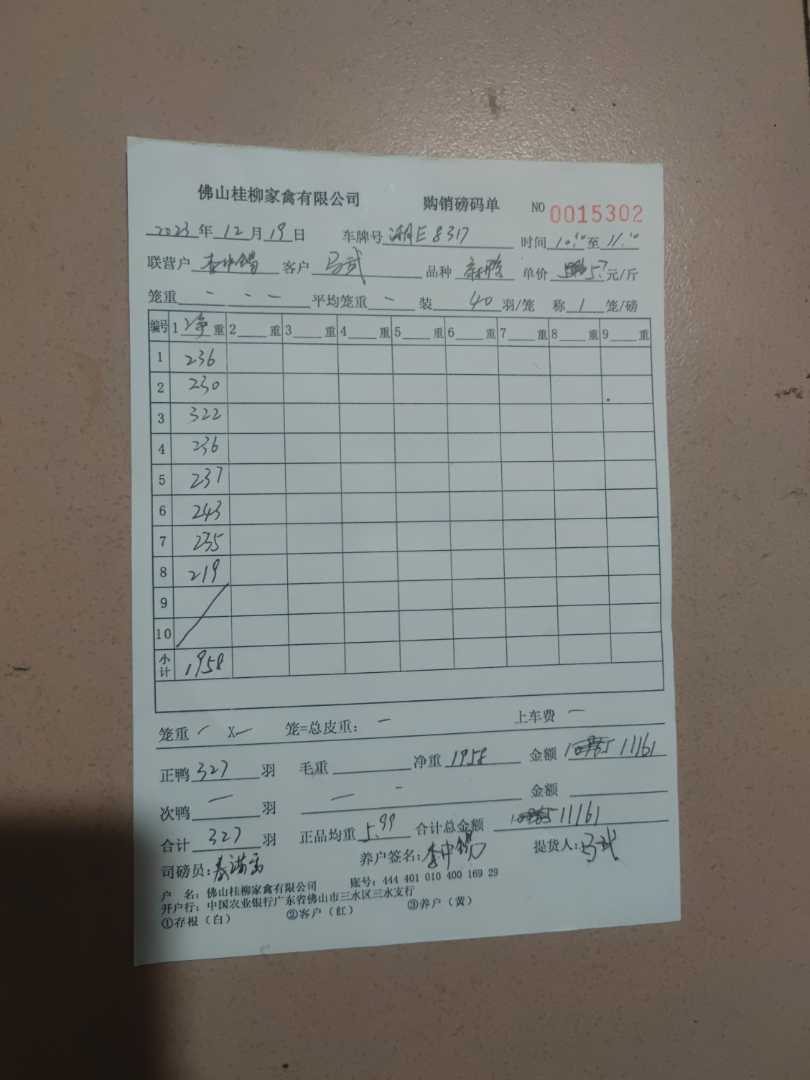 佛山桂柳家禽有限公司 购销磅码单 NO 0015302
2023年12月19日 车牌号 湘E8317 时间 10:40至11:10
联营户 李中锡 客户 马武 品种 单价 5.7元/斤
笼重 — — — 平均笼重 — 装 40 羽/笼 称 1 笼/磅
编号 1 净 重 2 重 3 重 4 重 5 重 6 重 7 重 8 重 9 重
1 236
2 230
3 322
4 236
5 237
6 243
7 235
8 219
9
10
小计 1958
笼重 — X — 笼=总皮重: — 上车费 —
正鸭 327 羽 毛重 净重 1958 金额 11161
次鸭 — 羽 — — 金额
合计 327 羽 正品均重 5.99 合计总金额 11161
司磅员: 养户签名: 李中锡 提货人: 马武
户 名: 佛山桂柳家禽有限公司 账号: 444 401 010 400 169 29
开户行: 中国农业银行广东省佛山市三水区三水支行
①存根(白) ②客户(红) ③养户(黄)